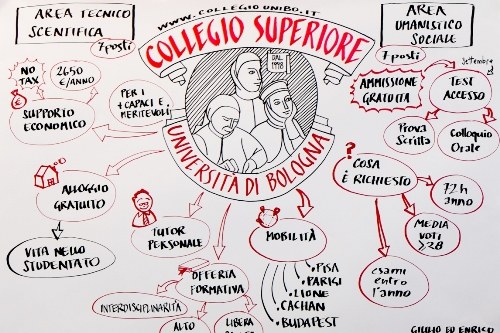 WWW.COLLEGIO.UNIBO.IT
AREA TECNICO
SCENTIFICA
7 posti
COLLEGIO SUPERIORE
DAL
1998
UNIVERSITÀ DI BOLOGNA
AREA
UMANISTICO
SOCIALE
7 posti
NO
TAX
2650
€/ANNO
€
SUPPORTO
ECONOMICO
PER I
+ CAPACI E
MERITEVOLI
AMMISSIONE
GRATUITA
settembre
TEST
ACCESSO
Prova
Scritta
Colloquio
Orale
ALLOGGIO
GRATUITO
VITA NELLO
STUDENTATO
TUTOR
PERSONALE
MOBILITÀ
PISA
PARIGI
LIONE
CACHAN
BUDAPEST
?
COSA
È RICHIESTO
72h
anno
MEDIA
VOTI
≥28
esami
entro
l'anno
OFFERTA
FORMATIVA
INTERDISCIPLINARITÀ
ALTO
LIBERA
GIULIO ED ENRICO